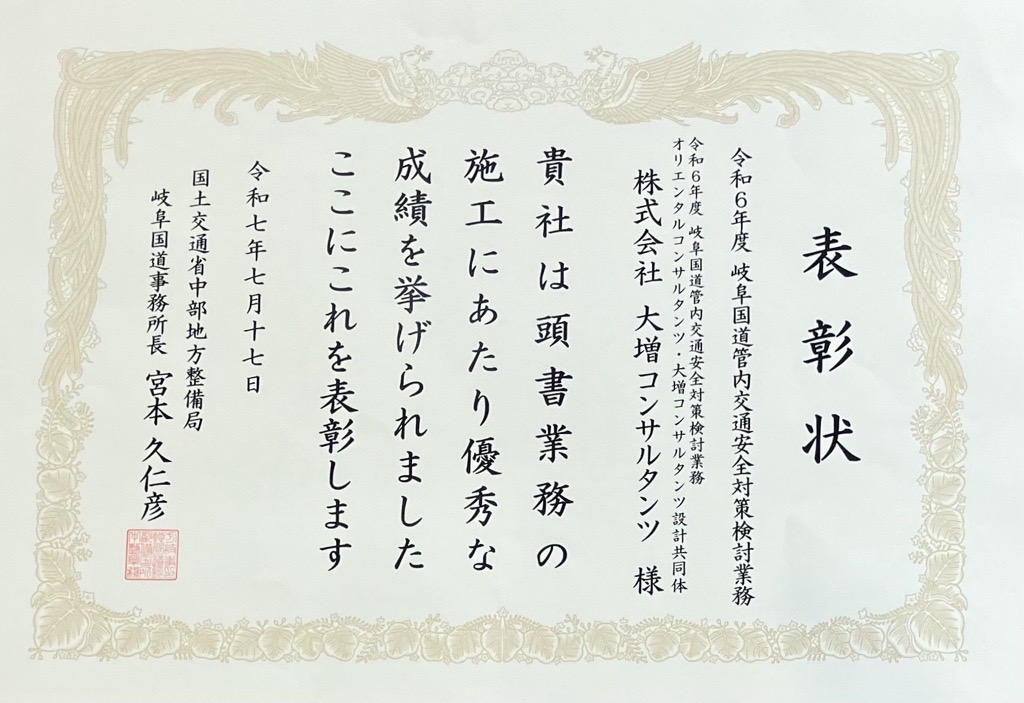 表彰状
令和６年度 岐阜国道管内交通安全対策検討業務
令和６年度 岐阜国道管内交通安全対策検討業務
オリエンタルコンサルタンツ・大増コンサルタンツ設計共同体
株式会社 大増コンサルタンツ 様
貴社は頭書業務の
施工にあたり優秀な
成績を挙げられました
ここにこれを表彰します
令和七年七月十七日
国土交通省中部地方整備局
岐阜国道事務所長 宮本 久仁彦